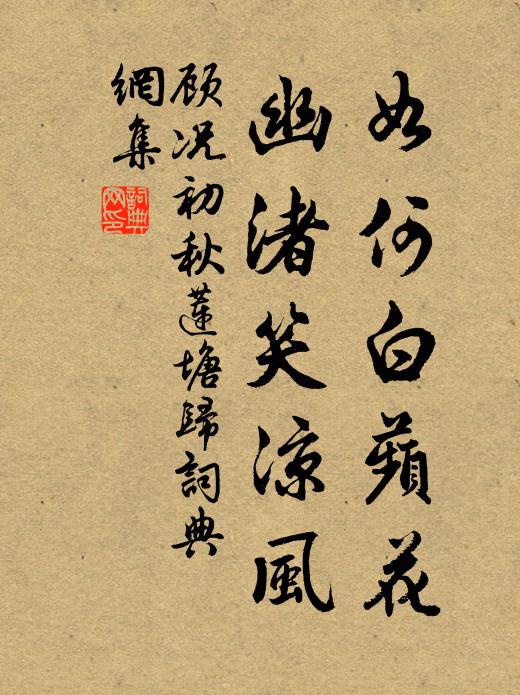 如何白蘋花
幽渚笑凉風
顾况初秋蓮塘歸詞典
網集
詞典
网印